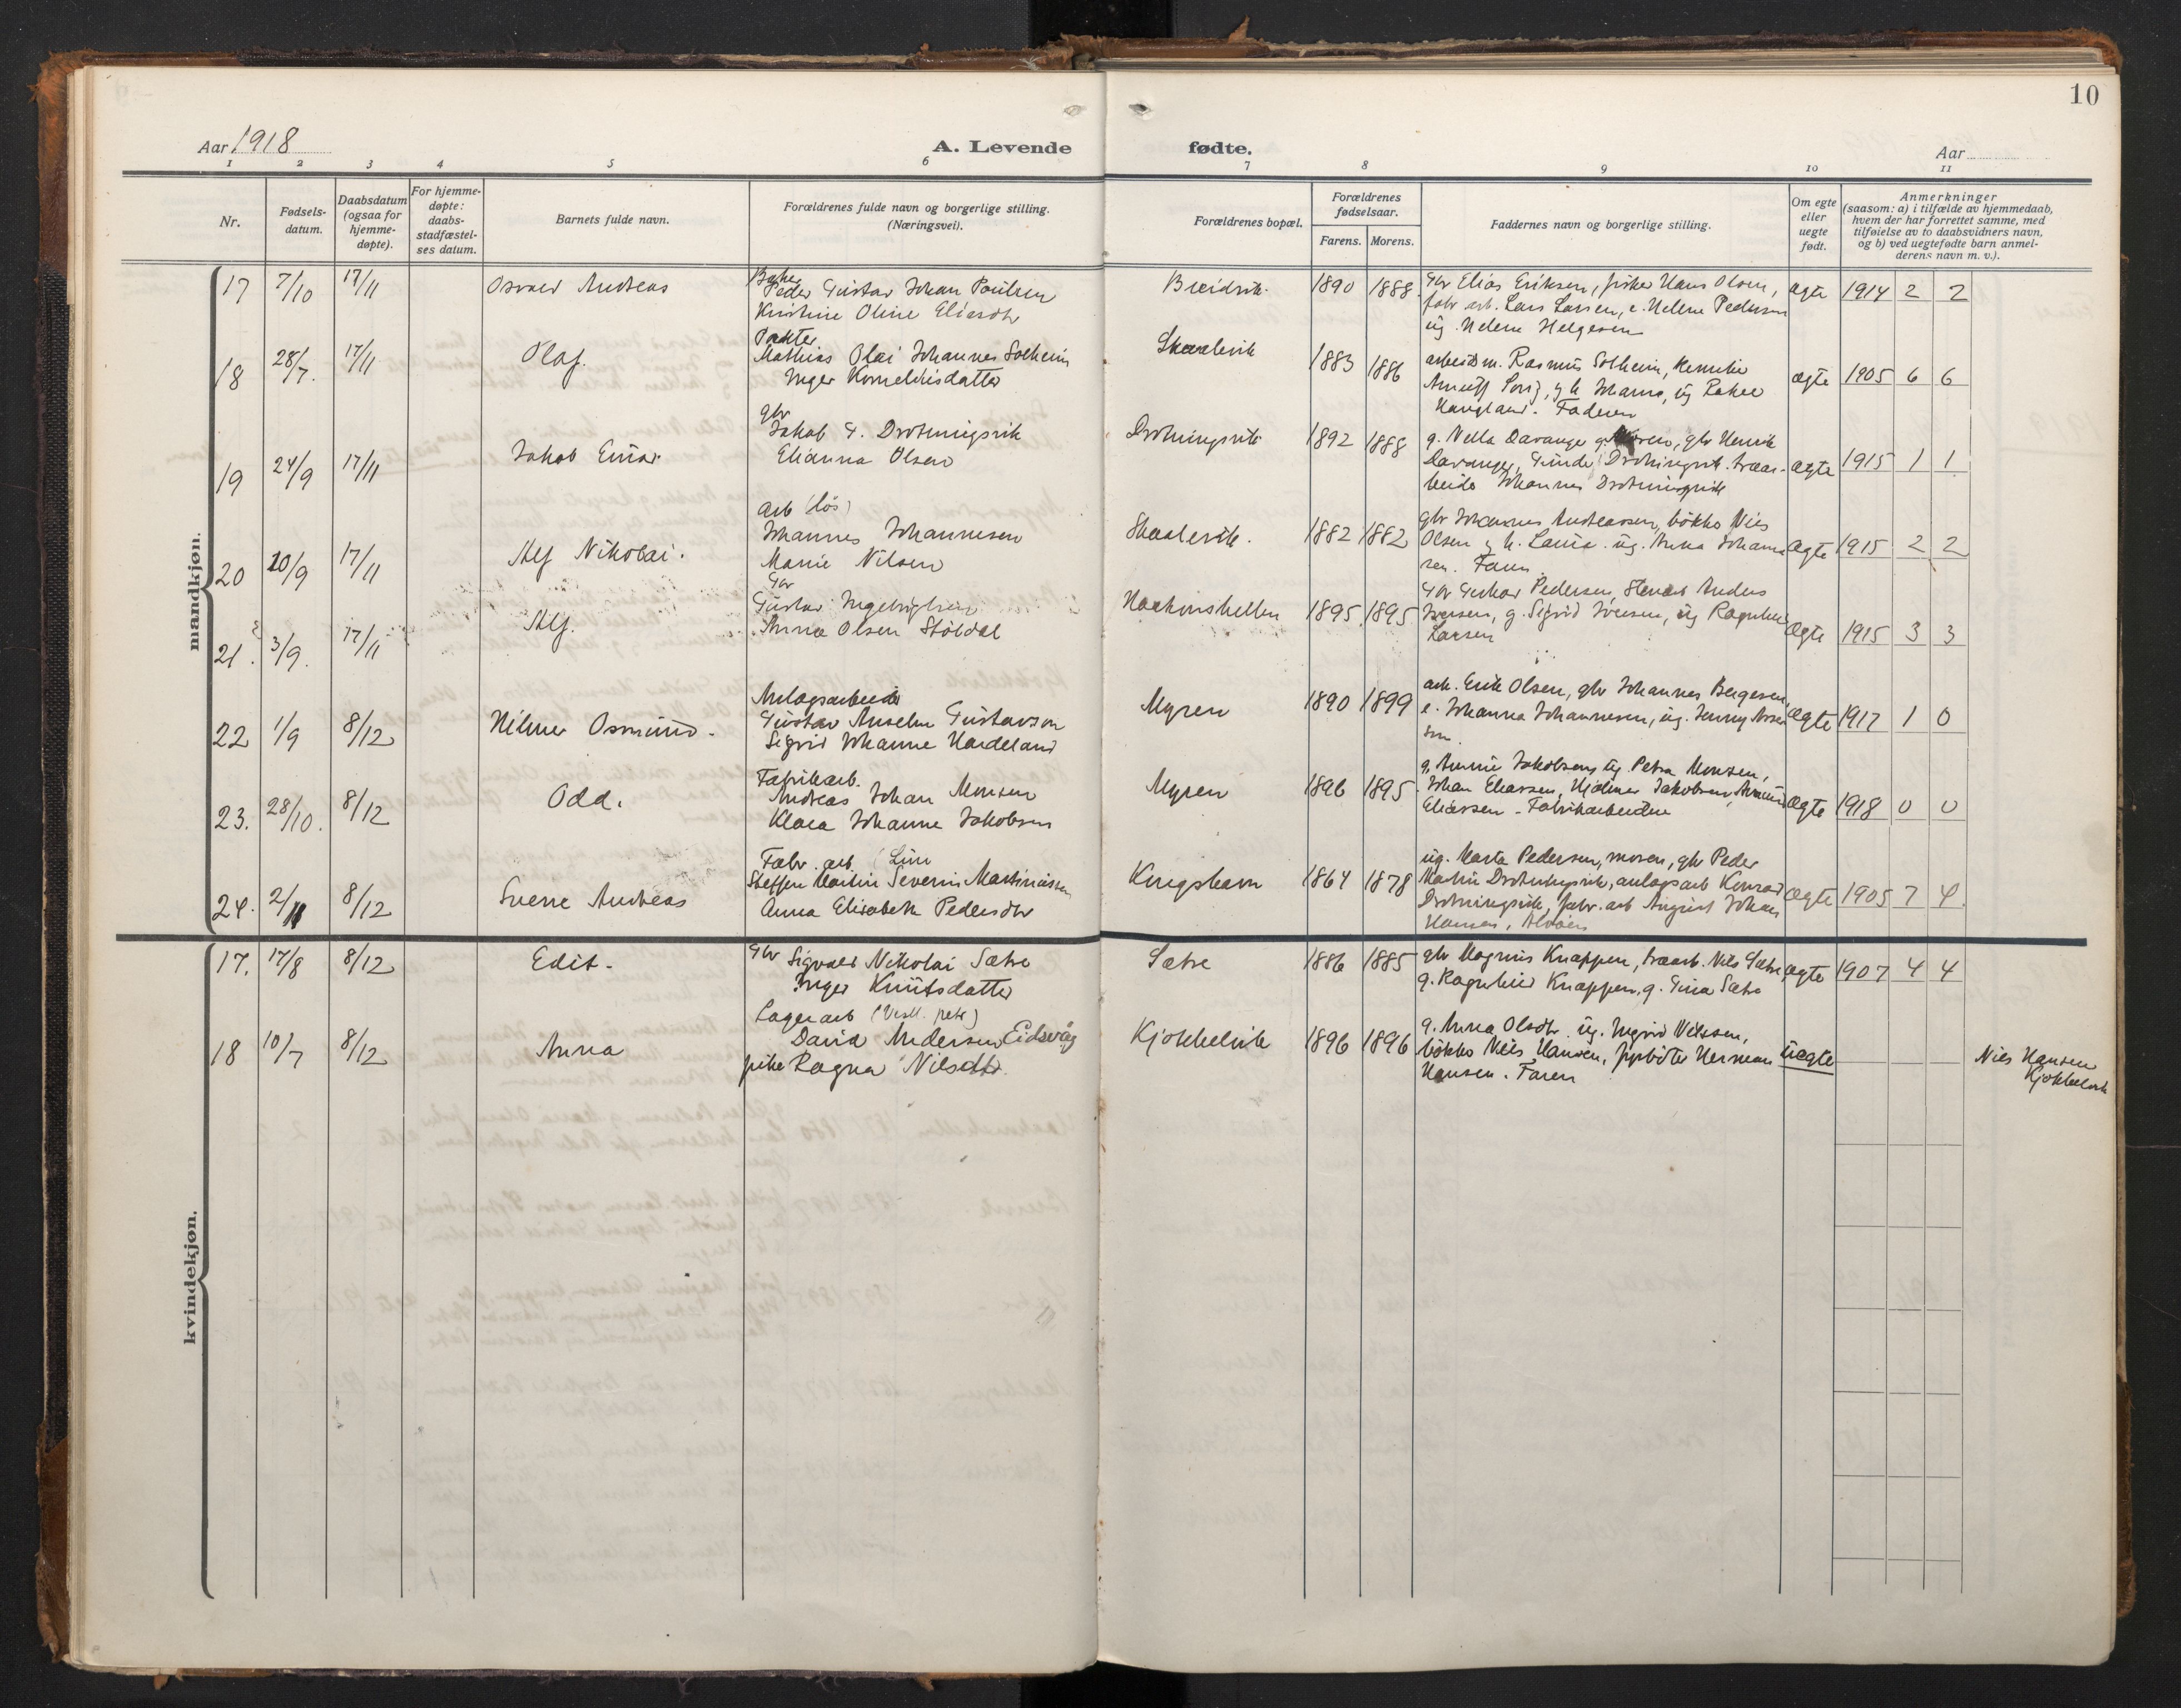 10
Aar 1918
A. Levende
fødte.
Aar
1 2 3 4 5 6 7 8 9 10 11
Nr.
Fødsels-
datum.
Daabsdatum
(ogsaa for
hjemme-
døpte).
For hjemme-
døpte:
daabs-
stadfæstel-
ses datum.
Barnets fulde navn.
Forældrenes fulde navn og borgerlige stilling.
(Næringsvei).
Forældrenes bopæl.
Forældrenes
fødselsaar.
Farens. Morens.
Faddernes navn og borgerlige stilling.
Om egte
eller
uegte
født.
Anmerkninger
(saasom: a) i tilfælde av hjemmedaab,
hvem der har forrettet samme, med
tilføielse av to daabsvidners navn,
og b) ved uegtefødte barn anmel-
derens navn m. v.).
mandkjøn.
17 7/10 17/11 Osvald Andreas
Baker
Peder Gustav Johan Poulsen
Kristine Oline Eliasdtr
Breidvik. 1890 1888
Gbr Elias Eriksen, fisker Hans Olsen,
fabr arb. Lars Larsen, e. Helene Pedersen
ug. Helene Helgesen
ægte 1914 2 2
18 28/7. 17/11 Olaf.
Mathias Olai Johannes Solheim
Inger Korneliusdatter
Skaalevik 1883 1886
arbeidsm. Rasmus Solheim,
Johanna, ug Rakel
Haugland. Faderen
ægte 1905 6 6
19 24/9 17/11 Jakob Einar
gbr
Jakob G. Drotningsvik
Elianna Olsen
Drotningsvik 1892 1888
g. Nella Davanger g. Moren, gbr Henrik
Davanger, Drotningsvik. traar-
beider Johannes Drotningsvik
ægte 1915 1 1
20 20/9 17/11 Alf Nikolai.
arb (løs)
Johannes Johannesen
Marie Nilsen
Skaalevik. 1882 1882
gbr Johannes Andreassen, bökker Nils
Olsen g h. Laura. ug. Anna Johanne-
sen. Faren
ægte 1915 2 2
21. 3/9. 17/11 Alf.
Gbr
Gustav Ingebrigtsen
Anna Olsen Stöldal
Haakonshellen 1895 1895
Gbr Oskar Pedersen, Anders
Iversen, g. Sigrid Iversen, ug Ragnhild
Larsen
Ægte 1915 3 3
22 1/9 8/12 Hilmer Osmund.
Anlagsarbeider
Gustav Anselm Gustavson
Sigrid Johanne Hardeland
Myren 1890 1899
arb. Erik Olsen, gbr Johannes Bergesen,
e. Johanna Johannesen, ug. Jenny
Ægte 1917 1 0
23. 28/10. 8/12 Odd.
Fabrikarb.
Andreas Johan Monsen
Klara Johanne Jakobsen
Myren 1896 1895
g. Annie Jakobsen, ug. Petra Monsen,
Johan Eliassen, Hjalmar Jakobsen,
Eliassen - Fabrikarbeidere
Ægte 1918 0 0
24. 2/11 8/12 Sverre Andreas
Fabr. arb.
Steffen Martin Severin Martiniussen
Anna Elisabeth Pedersdtr
Kingshavn 1864 1878
ug. Marta Pedersen, moren, gbr Peder
Martin Drotningsvik, anlagsarb Konrad
Drotningsvik, fabr. arb August Johan
Hansen, Alvøen
Ægte 1905 7 4.
kvindekjøn.
17. 17/8 8/12 Edit.
Gbr Sigvald Nikolai Sætre
Inger Knutsdatter
Sætre 1886 1885
gbr Magnus Knappen, traarb. Nils Sætre
g. Ragnhild Knappen, g. Gina Sætre
ægte 1907 4 4
18 10/7 8/12 Anna
Lagerarb
David Andersen Eidsvåg
pike Ragna Nilsdtr.
Kjøkkelvik 1896 1896
g. Anna Olsdtr. ug. Ingrid Nilssen,
bökker Nils Hansen, fyrbøter Herman
Hansen. Faren
uegte
Nils Hansen
Kjøkkelvik